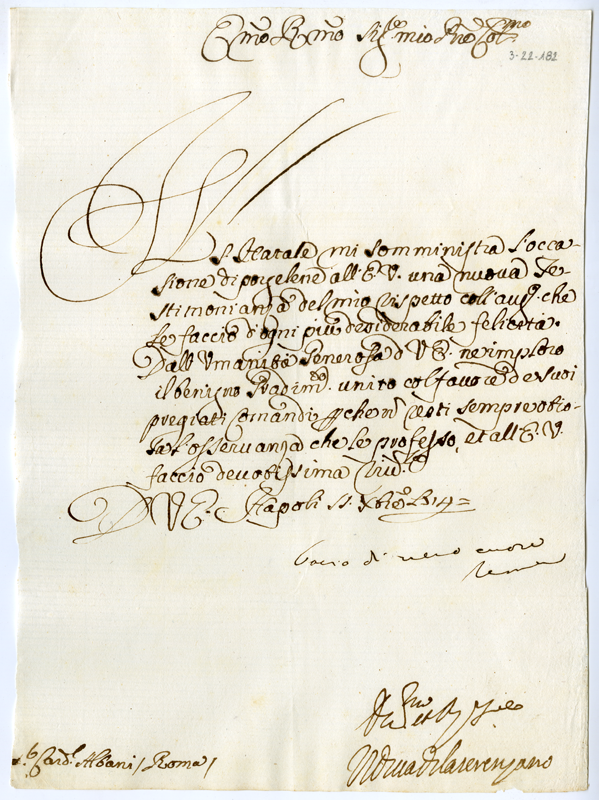 Em̃o Rm̃o Sig.re mio Pnẽ Col.mo
3-22-182
Il S. Natale mi somministra l'occa-
sione di porgelene all'E.V. una nuova Te-
stimonianza del mio rispetto coll'aug.o che
le faccio d'ogni più desiderabile felicità.
Dall'Umanità Generosa d V E. ne imploro
il benigno Gradim.to unito col favore de suoi
pregiati comandi che resti sempre
l'osservanza che le professo, et all'E.V.
faccio devotissima riv.a
D V E. Napoli Xbre 1714=
bacio di vero cuore
et
Card.l Albani / Roma /